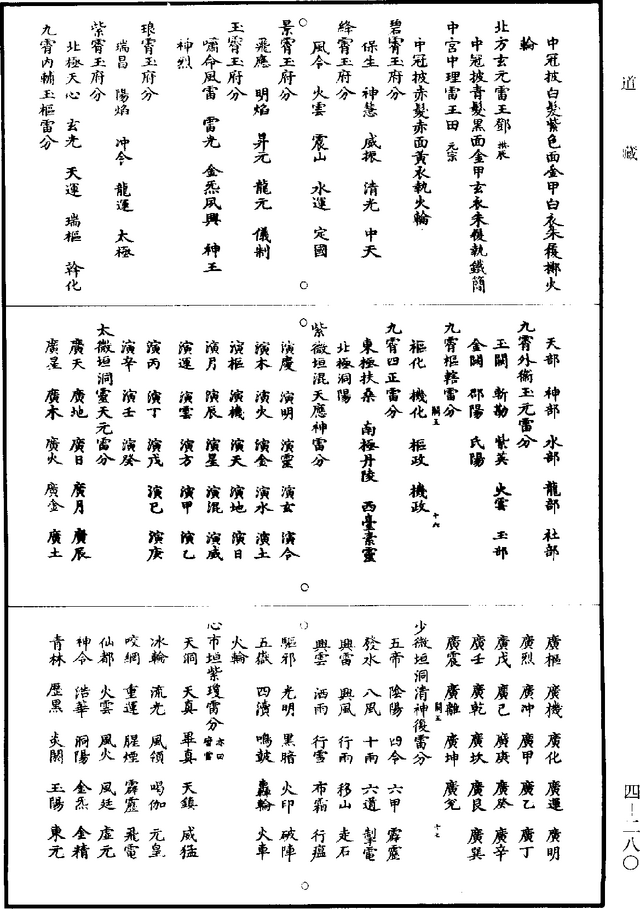 道藏
中冠披白髮紫色面金甲白衣朱履擲火
輪
北方玄元雷王鄧 拱辰
中冠披青髮黑面金甲玄衣朱履執鐵簡
中宮中理雷王田 元宗
中冠披赤髮赤面黃衣執火輪
碧霄玉府分
保生 神慧 威振 清光 中天
絳霄玉府分
風令 火雲 震山 水運 定國
景霄玉府分
飛應 明焰 昇元 龍元 儀制
玉霄玉府分
嘯命風雷 雷光 金炁風興 神王
神烈
琅霄玉府分
瑞昌 陽焰 冲令 龍運 太極
紫霄玉府分
北極天心 玄光 天運 瑞樞 幹化
九霄內輔玉樞雷分
天部 神部 水部 龍部 社部
九霄外衛玉元雷分
玉闕 斬勘 紫英 火雲 玉部
金闕 郡陽 氏陽
九霄樞轄雷分
樞化 機化 樞政 機政
九霄四正雷分
東極扶桑 南極丹陵 西臺素靈
北極洞陽
紫微垣混天應神雷分
演慶 演明 演靈 演玄 演令
演木 演火 演金 演水 演土
演樞 演機 演天 演地 演日
演月 演辰 演星 演混 演威
演運 演雲 演方 演甲 演乙
演丙 演丁 演戊 演巳 演庚
演辛 演壬 演癸
太微垣洞靈天元雷分
廣天 廣地 廣日 廣月 廣辰
廣星 廣木 廣火 廣金 廣土
廣樞 廣機 廣化 廣運 廣明
廣烈 廣冲 廣甲 廣乙 廣丁
廣戊 廣己 廣庚 廣癸 廣辛
廣壬 廣乾 廣坎 廣艮 廣巽
廣震 廣離 廣坤 廣兌
少微垣洞清神復雷分
五帝 陰陽 四令 六甲 霹靂
發水 八風 十雨 六道 掣電
興雷 興風 行雨 移山 走石
興雲 洒雨 行雪 布霜 行瘟
驅邪 光明 黑暗 火印 破陣
五嶽 四瀆 鳴鼓 轟輪 火車
火輪
心市垣紫瓊雷分 亦曰督雷
天洞 天真 畢真 天鎮 威猛
冰輪 流光 風領 喝伽 元皇
咬網 重運 腥煙 霹靂 飛電
仙都 火雲 風火 風廷 虛元
神令 浩華 洞陽 金炁 金精
青林 歷黑 炎閼 玉陽 東元
四-二八〇